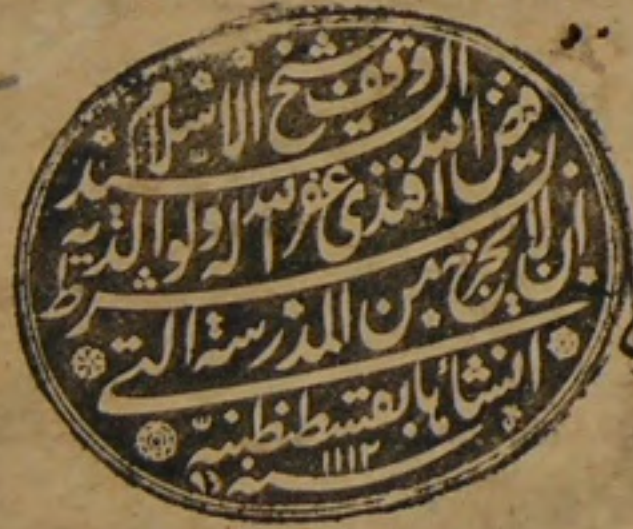 الوقف شيخ الاسلام السيد
فيض الله افندى غفر الله له ولوالديه بشرط
ان لا يخرج من المدرسة التى
انشأها بقسطنطنية
سنه ١١١٢